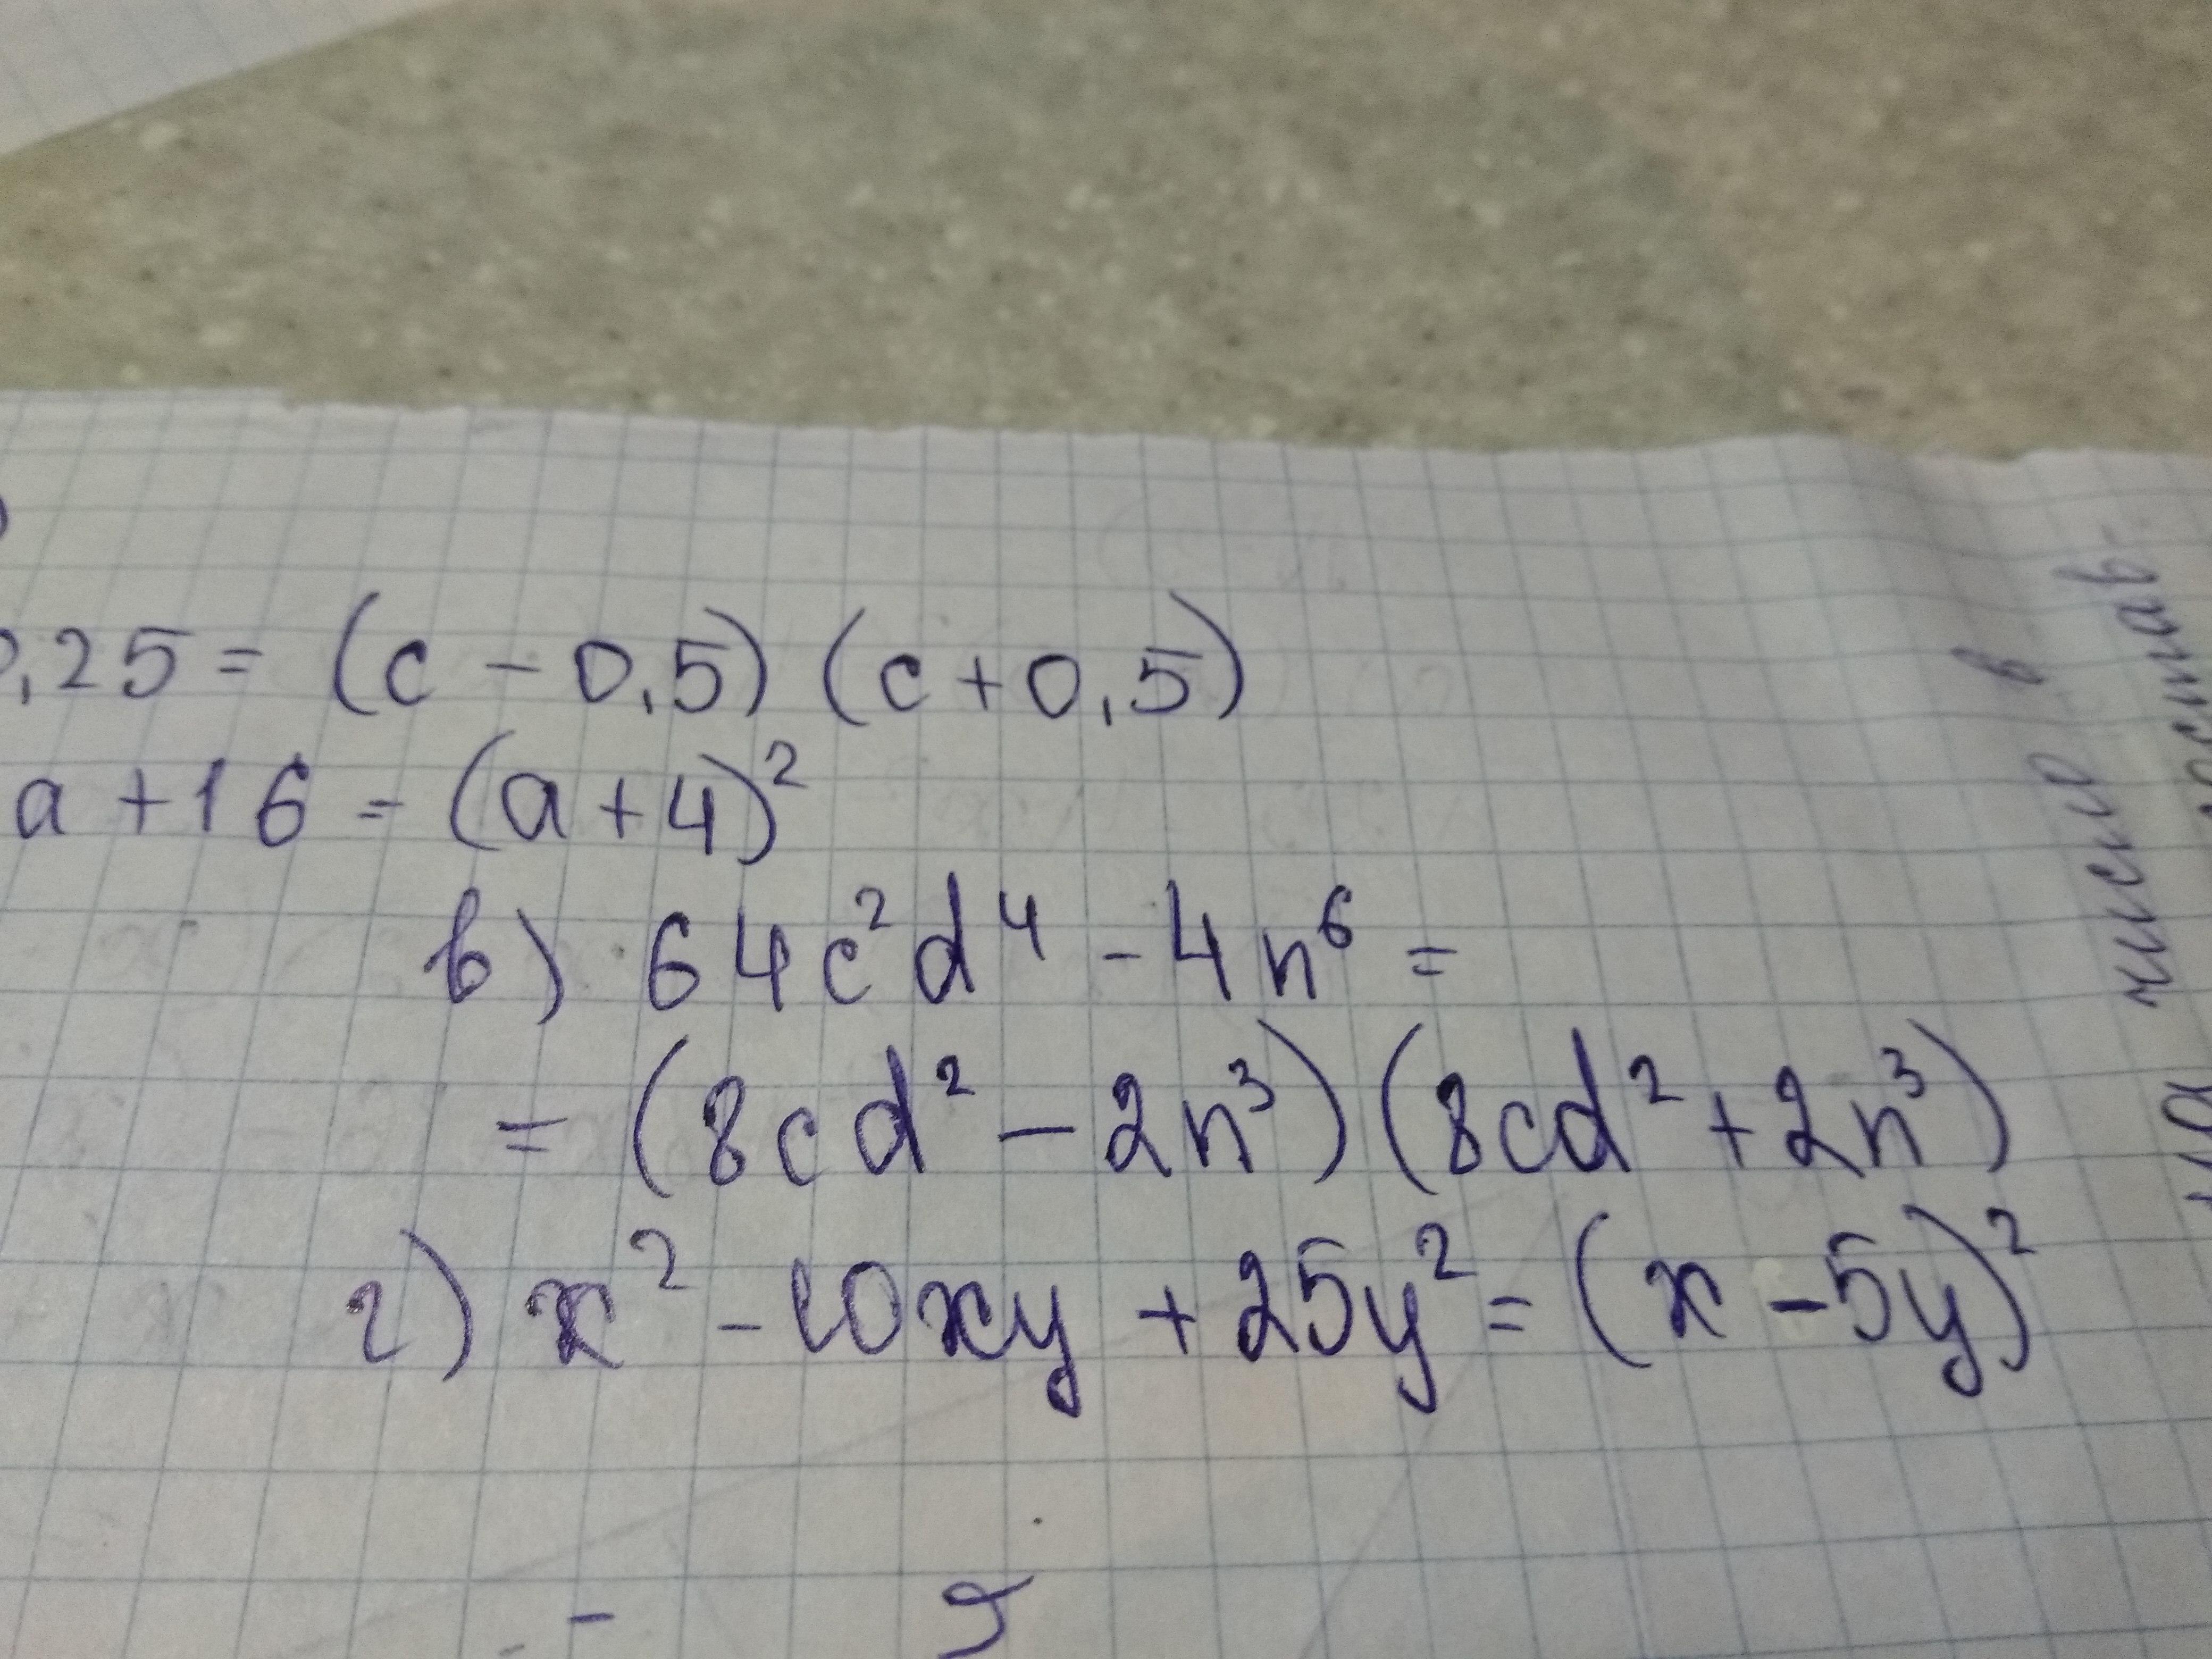 ,25 = (c - 0,5) (c + 0,5)
a + 16 = (a + 4)²
в) 64c²d⁴ - 4n⁶ =
= (8cd² - 2n³) (8cd² + 2n³)
г) x² - 10xy + 25y² = (x - 5y)²
число в